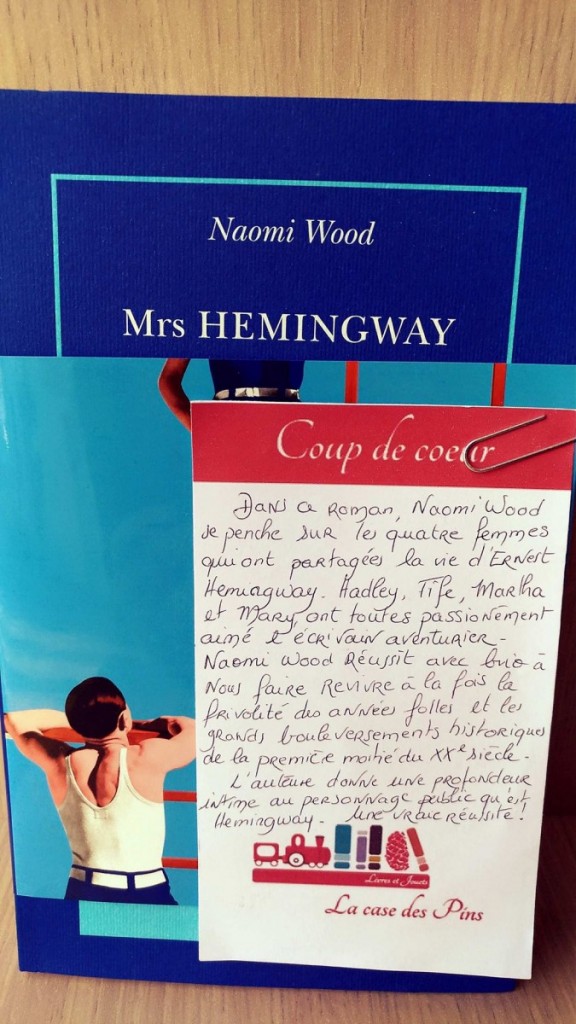 Naomi Wood
Mrs HEMINGWAY
Coup de coeur
Dans ce roman, Naomi Wood
se penche sur les quatre femmes
qui ont partagées la vie d'Ernest
Hemingway. Hadley, Fife, Martha
et Mary, ont toutes passionément
aimé l'écrivain aventurier.
Naomi Wood réussit avec brio à
nous faire revivre à la fois la
frivolité des années folles et les
grands bouleversements historiques
de la première moitié du XXe siècle.
L'auteure donne une profondeur
intime au personnage public qu'est
Hemingway. Une vraie réussite!
Livres et Jouets
La case des Pins